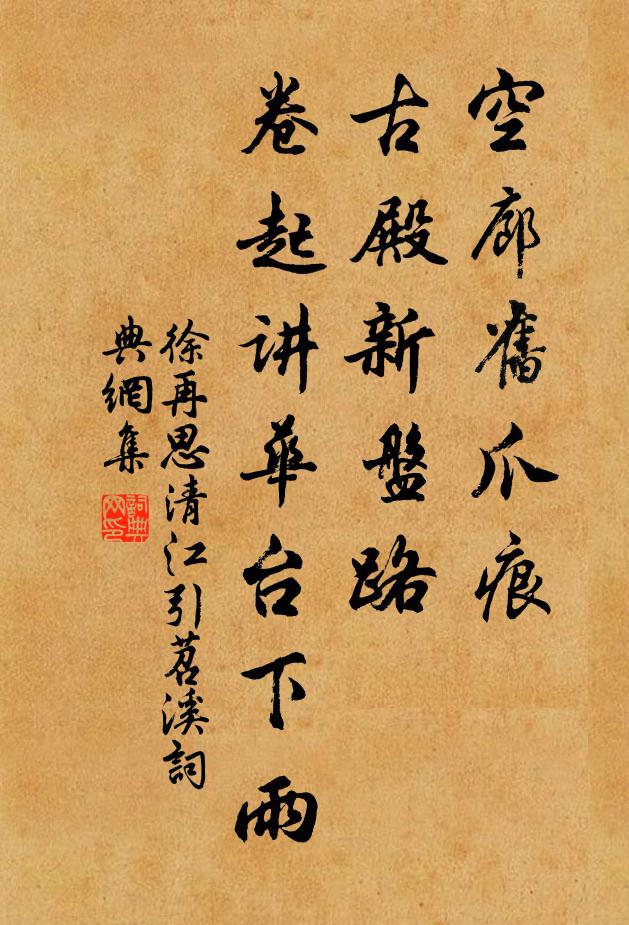 空廊舊爪痕
古殿新盤路
卷起讲華台下雨
徐再思清江引苕溪詞
典網集
詞典網印